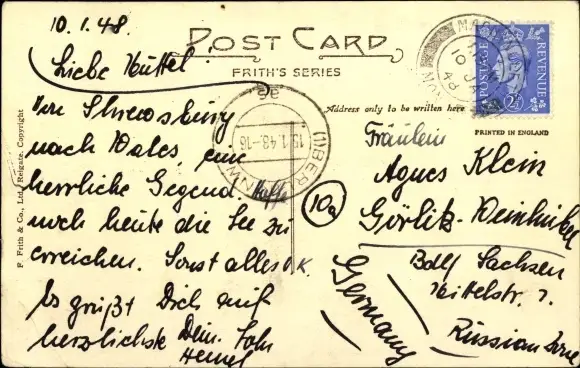 10.1.48.
POST CARD
FRITH'S SERIES
Address only to be written here
PRINTED IN ENGLAND
F. Frith & Co., Ltd., Reigate. Copyright
POSTAGE
REVENUE
2½
15.1.48.-16
(1) BERLIN
Liebe
Von Shrewsbury
nach Wales, eine
herrliche Gegend. Hoffe
noch heute die See zu
erreichen. Sonst alles O.K.
Es grüßt Dich auf
herzlichste Dein Sohn
Hemel
Fräulein
Agnes Klein
Görlitz-Weinhübel
10a
Bdld Sachsen
Zittelstr. 7.
Russian Zone
Germany